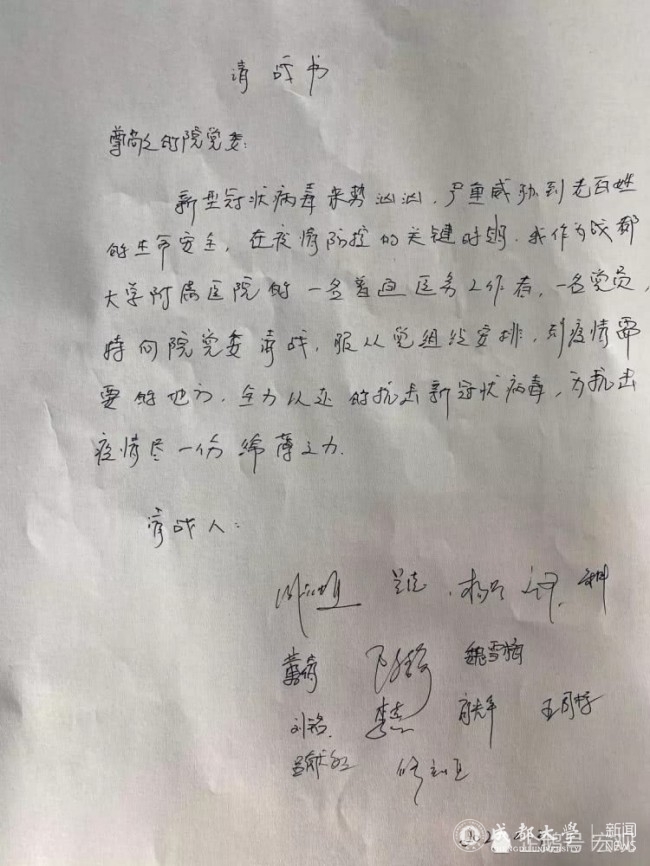 请战书
尊敬的院党委:
新型冠状病毒来势汹汹,严重威胁到老百姓
的生命安全,在疫情防控的关键时期,我作为成都
大学附属医院的一名普通医务工作者,一名党员,
特向院党委请战,服从党组织安排,到疫情需
要的地方,全力以赴的抗击新冠状病毒,为抗击
疫情尽一份绵薄之力.
请战人:
魏雪梅
刘铭 李杰
成都大学 新闻
NEWS
企鹅号 宏观